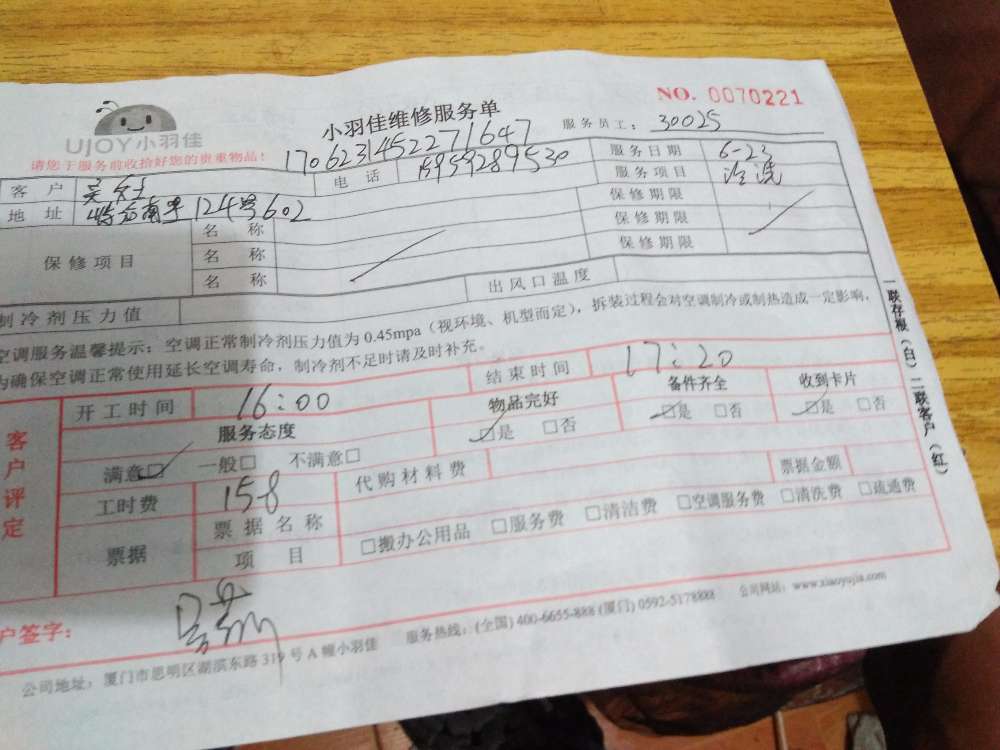 NO. 0070221
UJOY小羽佳
小羽佳维修服务单
服务员工： 30025
请您于服务前收拾好您的贵重物品！
1706231452271647
客户 吴 电话 15959289530 服务日期 6-23
服务项目 冷洗
地址 124号602 保修期限
保修项目 名称 保修期限
名称 保修期限
名称 出风口温度
制冷剂压力值
空调服务温馨提示：空调正常制冷剂压力值为 0.45mpa（视环境、机型而定），拆装过程会对空调制冷或制热造成一定影响，
为确保空调正常使用延长空调寿命，制冷剂不足时请及时补充。
客户评定
开工时间 16:00 结束时间 17:20
服务态度 物品完好 备件齐全 收到卡片
满意□ 一般□ 不满意□ □是 □否 □是 □否 □是 □否
工时费 158 代购材料费 票据金额
票据 票据名称
项目 □搬办公用品 □服务费 □清洁费 □空调服务费 □清洗费 □疏通费
户签字：
公司地址：厦门市思明区湖滨东路 319 号 A 幢小羽佳 服务热线：(全国) 400-6655-888 (厦门) 0592-5178888 公司网站：www.xiaoyujia.com
一联存根（白）二联客户（红）